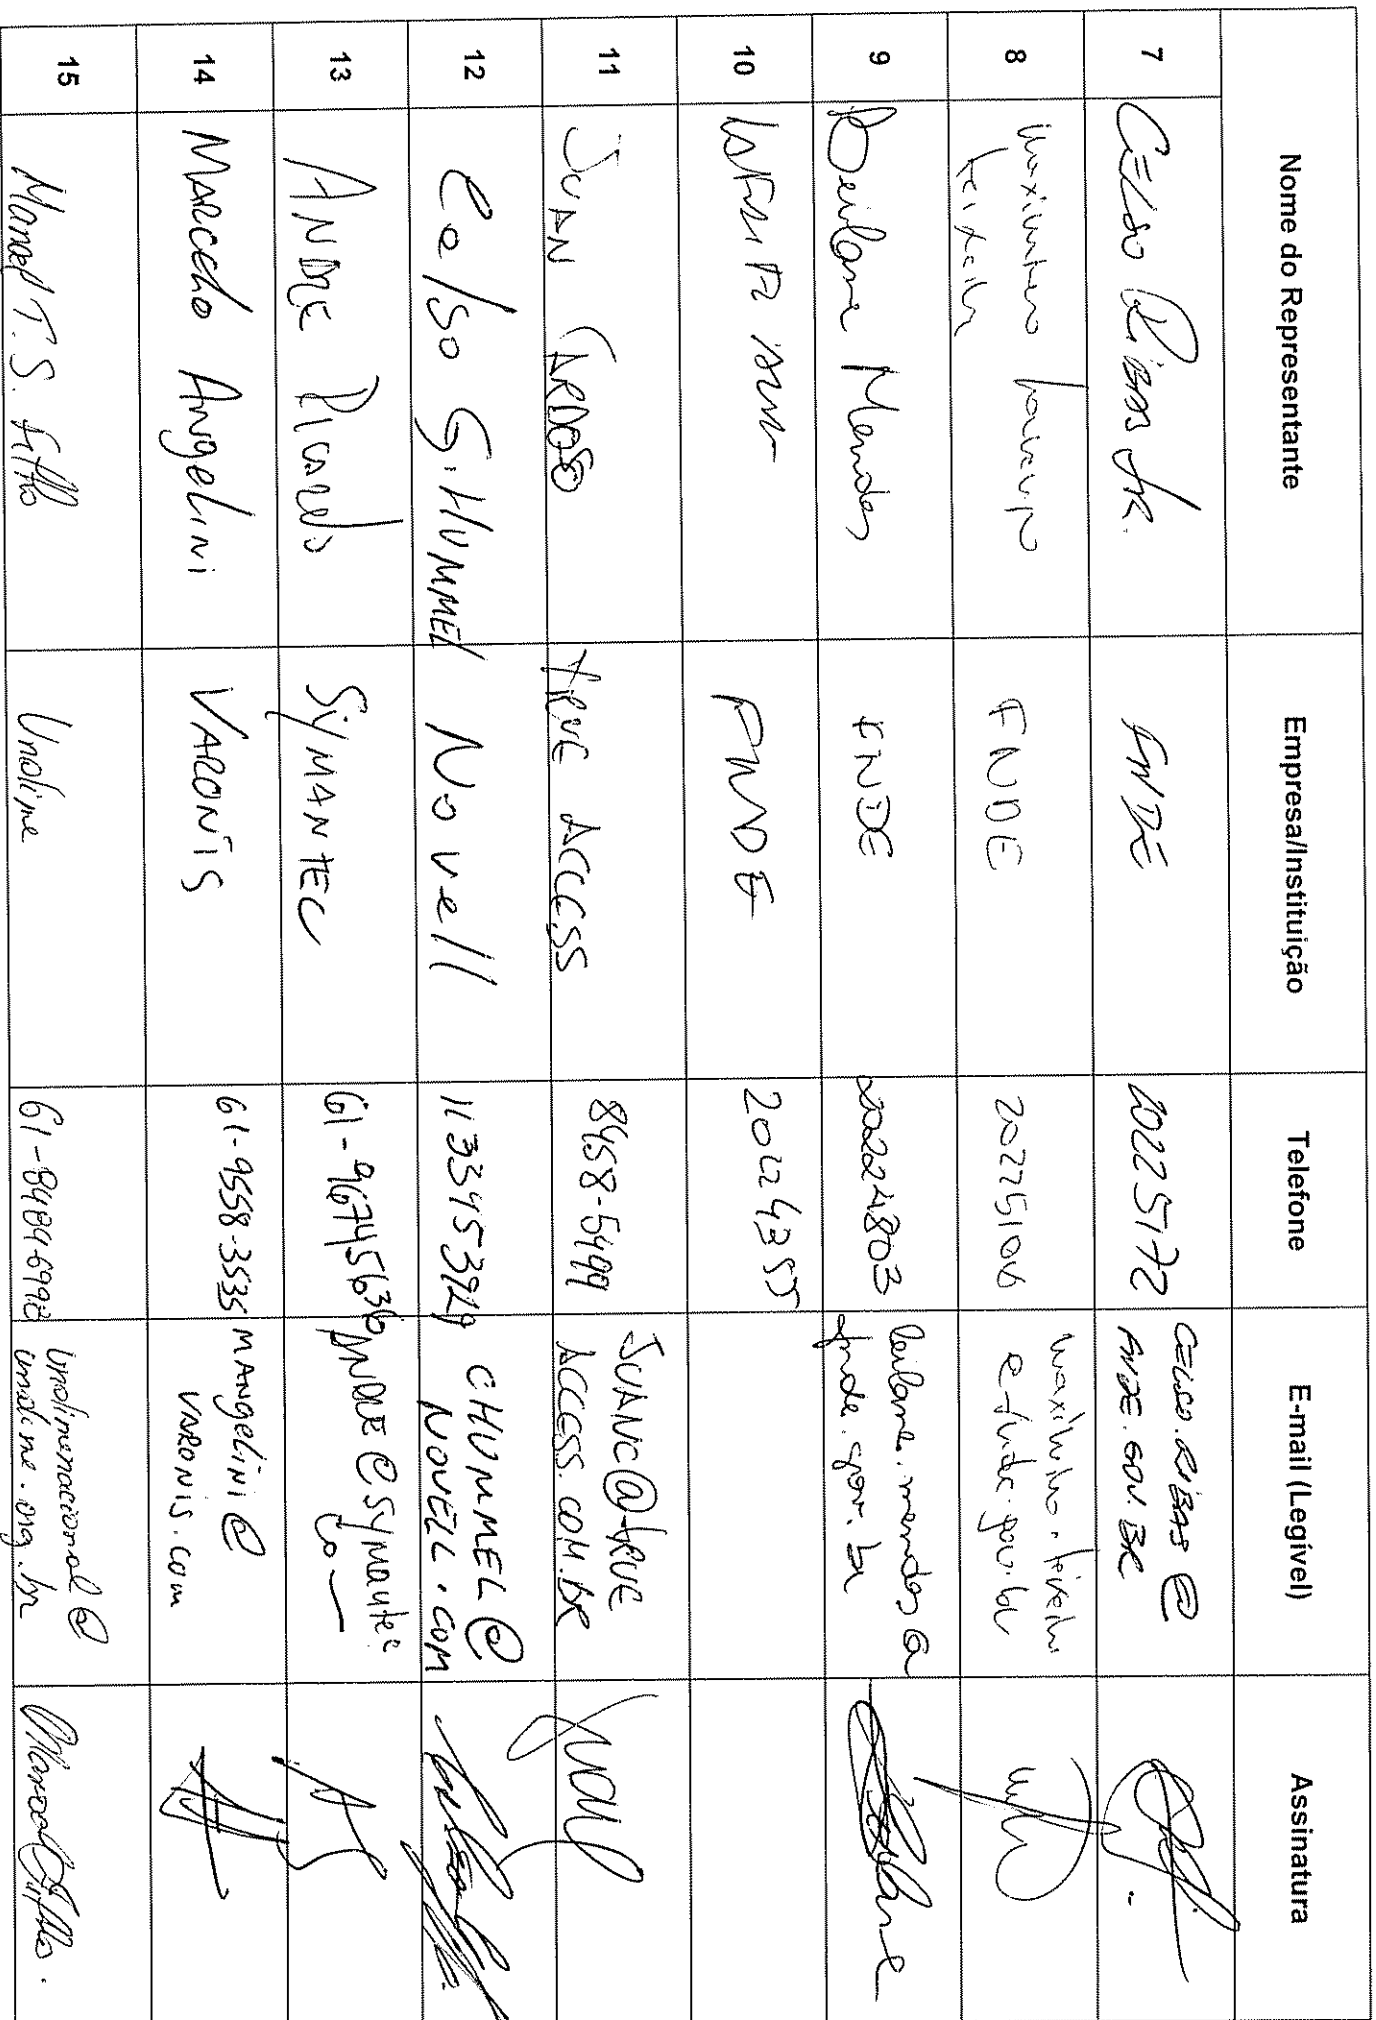 Nome do Representante Empresa/Instituição Telefone E-mail (Legível) Assinatura
7 CELSO RIBAS JR. FNDE 20225172 CELSO.RIBAS@
FNDE.GOV.BR
8 FNDE 20225106
9 Leilane Mendes FNDE 20224803 leilane.mendes@
fnde.gov.br
10 FNDE 20224355
11 JUAN CARDOSO TRUE ACCESS 8458-5499 JUANC@TRUE
ACCESS.COM.BR
12 Celso G. HUMMEL Novell 1133453940 CHUMMEL@
NOVELL.COM
13 ANDRE PICARDO SYMANTEC 61-96745636 ANDRE@Symantec
14 MARCELO Angelini VARONIS 61-9558-3535 MANgelini@
VARONIS.com
15 Manoel T. S. Filho Undime 61-84896992 undimenacional@
undime.org.br